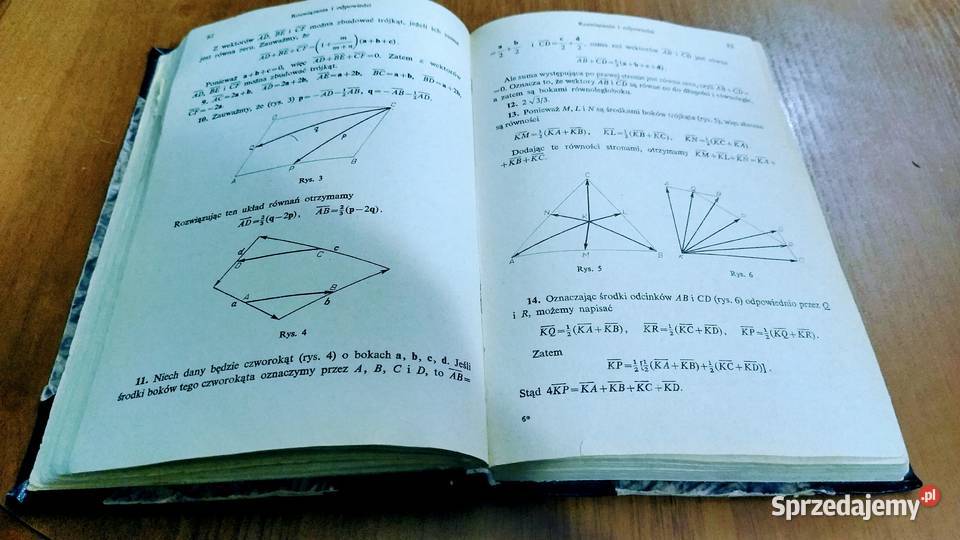 82
Rozwiązania i odpowiedzi
Z wektorów AD, BE i CF można zbudować trójkąt, jeżeli ich suma
jest równa zeru. Zauważmy, że
AD+BE+CF=(1+m/(m+n))(a+b+c).
Ponieważ a+b+c=0, więc AD+BE+CF=0. Zatem z wektorów
AD, BE i CF można zbudować trójkąt.
9. AC=2a+b, AD=2a+2b, AE=a+2b, BC=a+b, BD=a+2b,
CF=-2a.
10. Zauważmy, że (rys. 3) p=-AD-½AB, q=-AB-½AD.
C
q
Q
P
A
P
B
Rys. 3
Rozwiązując ten układ równań otrzymamy
AD=⅔(q-2p), AB=⅔(p-2q).
d
D
C
c
a
A
B
b
Rys. 4
11. Niech dany będzie czworokąt (rys. 4) o bokach a, b, c, d. Jeśli
środki boków tego czworokąta oznaczymy przez A, B, C i D, to AB=
Rozwiązania i odpowiedzi
83
=a/2+b/2 i CD=c/2+d/2, suma zaś wektorów AB i CD jest równa
AB+CD=½(a+b+c+d).
Ale suma występująca po prawej stronie jest równa zeru, czyli AB+CD=
=0. Oznacza to, że wektory AB i CD są równe co do długości i równoległe,
a zatem są bokami równoległoboku.
12. 2√3/3.
13. Ponieważ M, L i N są środkami boków trójkąta (rys. 5), więc słuszne
są równości
KM=½(KA+KB), KL=½(KB+KC), KN=½(KC+KA).
Dodając te równości stronami, otrzymamy KM+KL+KN=KA+
+KB+KC.
C
N
K
L
A
M
B
Rys. 5
A
Q
B
P
R
K
C
Rys. 6
14. Oznaczając środki odcinków AB i CD (rys. 6) odpowiednio przez Q
i R, możemy napisać
KQ=½(KA+KB), KR=½(KC+KD), KP=½(KQ+KR).
Zatem
KP=½[½(KA+KB)+½(KC+KD)].
Stąd 4KP=KA+KB+KC+KD.
6*
Sprzedajemy.pl